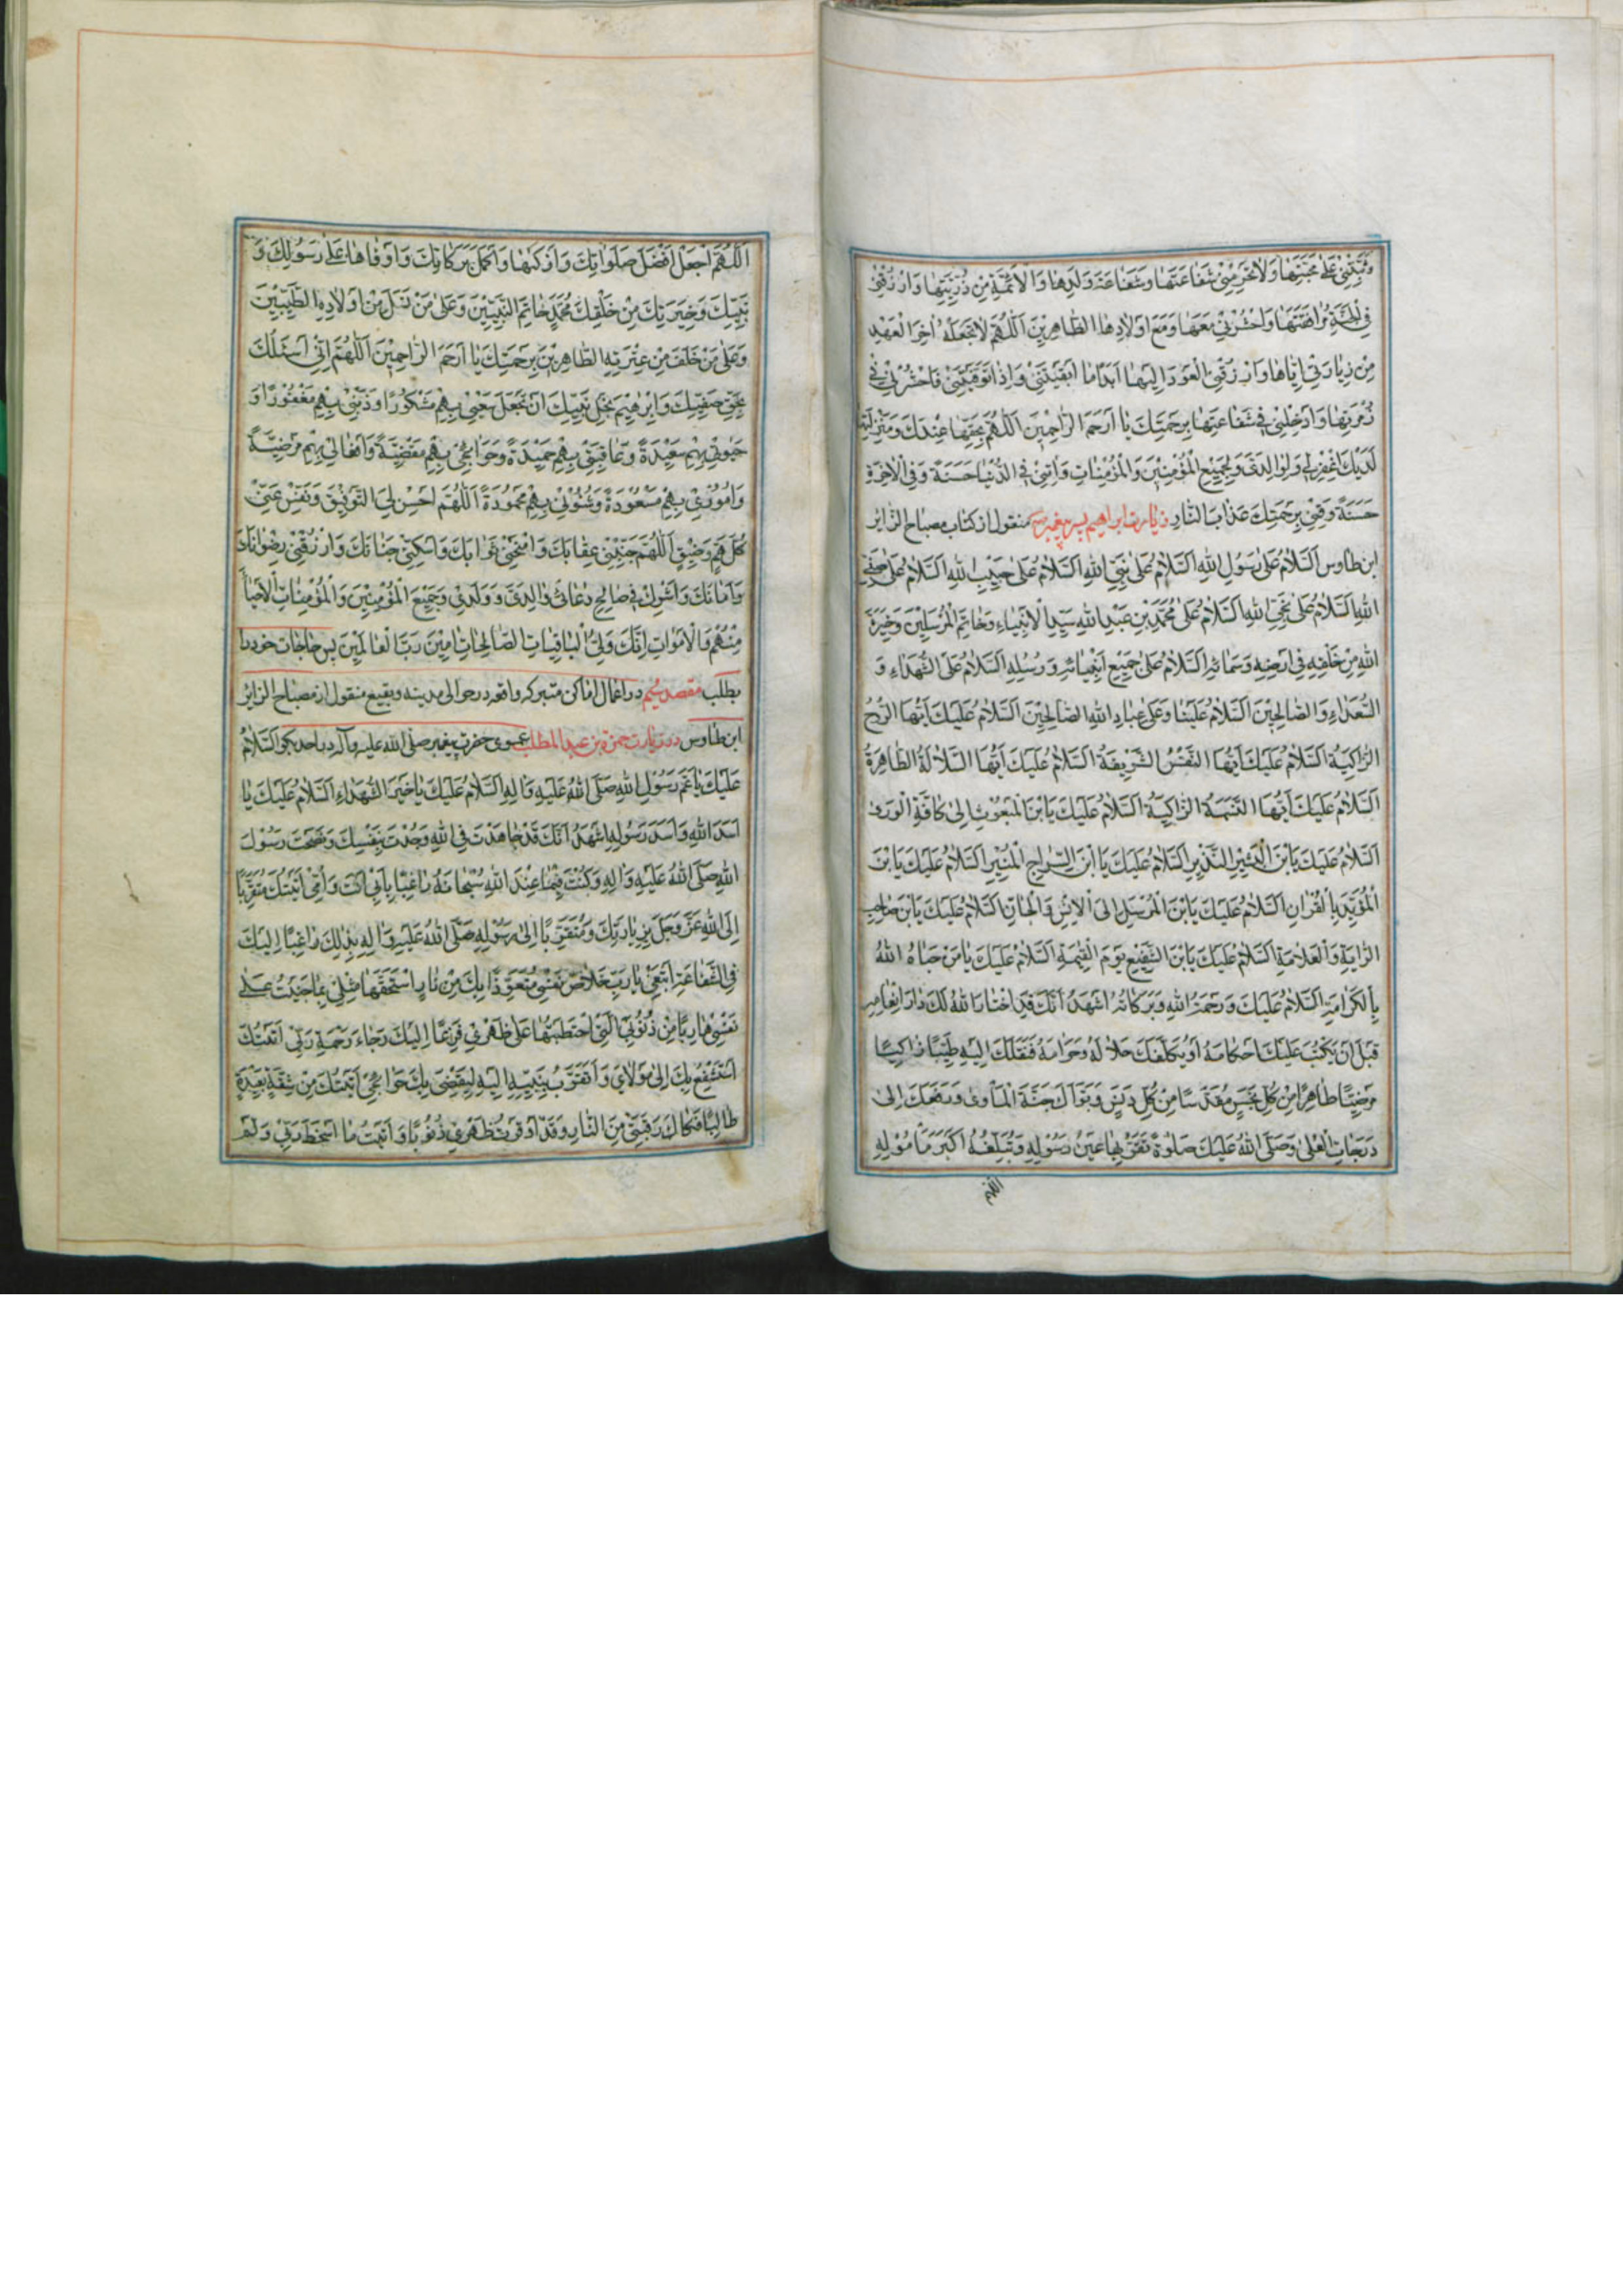 وَثَبِّتْنِي عَلَى مَحَبَّتِهَا وَلَا تَحْرِمْنِي شَفَاعَتَهَا وَشَفَاعَةَ وَلَدِهَا وَالْأَئِمَّةِ مِنْ ذُرِّيَّتِهَا وَارْزُقْنِي
فِي الْجَنَّةِ مُرَافَقَتَهَا وَاحْشُرْنِي مَعَهَا وَمَعَ أَوْلَادِهَا الطَّاهِرِينَ اَللّٰهُمَّ لَا تَجْعَلْهُ اٰخِرَ الْعَهْدِ
مِنْ زِيَارَتِي إِيَّاهَا وَارْزُقْنِي الْعَوْدَ إِلَيْهَا أَبَدًا مَا أَبْقَيْتَنِي وَإِذَا تَوَفَّيْتَنِي فَاحْشُرْنِي فِي
زُمْرَتِهَا وَأَدْخِلْنِي فِي شَفَاعَتِهَا بِرَحْمَتِكَ يَا أَرْحَمَ الرَّاحِمِينَ اَللّٰهُمَّ بِحَقِّهَا عِنْدَكَ وَمَنْزِلَتِهَا
لَدَيْكَ اغْفِرْ لِي وَلِوَالِدَيَّ وَلِجَمِيعِ الْمُؤْمِنِينَ وَالْمُؤْمِنَاتِ وَاٰتِنِي فِي الدُّنْيَا حَسَنَةً وَفِي الْاٰخِرَةِ
حَسَنَةً وَقِنِي بِرَحْمَتِكَ عَذَابَ النَّارِ زيارت ابراهيم پسر پيغمبر منقول از كتاب مصباح الزائر
ابن طاوس اَلسَّلَامُ عَلَى رَسُولِ اللهِ اَلسَّلَامُ عَلَى نَبِيِّ اللهِ اَلسَّلَامُ عَلَى حَبِيبِ اللهِ اَلسَّلَامُ عَلَى صَفِيِّ
اللهِ اَلسَّلَامُ عَلَى نَجِيِّ اللهِ اَلسَّلَامُ عَلَى مُحَمَّدِ بْنِ عَبْدِ اللهِ سَيِّدِ الْأَنْبِيَاءِ وَخَاتَمِ الْمُرْسَلِينَ وَخِيَرَةِ
اللهِ مِنْ خَلْقِهِ فِي أَرْضِهِ وَسَمَائِهِ اَلسَّلَامُ عَلَى جَمِيعِ أَنْبِيَائِهِ وَرُسُلِهِ اَلسَّلَامُ عَلَى الشُّهَدَاءِ وَ
السُّعَدَاءِ وَالصَّالِحِينَ اَلسَّلَامُ عَلَيْنَا وَعَلَى عِبَادِ اللهِ الصَّالِحِينَ اَلسَّلَامُ عَلَيْكَ أَيَّتُهَا الرُّوحُ
الزَّاكِيَةُ اَلسَّلَامُ عَلَيْكَ أَيَّتُهَا النَّفْسُ الشَّرِيفَةُ اَلسَّلَامُ عَلَيْكَ أَيَّتُهَا السُّلَالَةُ الطَّاهِرَةُ
اَلسَّلَامُ عَلَيْكَ أَيَّتُهَا النَّسَمَةُ الزَّاكِيَةُ اَلسَّلَامُ عَلَيْكَ يَابْنَ الْمَبْعُوثِ إِلَى كَافَّةِ الْوَرَى
اَلسَّلَامُ عَلَيْكَ يَابْنَ الْبَشِيرِ النَّذِيرِ اَلسَّلَامُ عَلَيْكَ يَا ابْنَ السِّرَاجِ الْمُنِيرِ اَلسَّلَامُ عَلَيْكَ يَابْنَ
الْمُؤَيَّدِ بِالْقُرْاٰنِ اَلسَّلَامُ عَلَيْكَ يَابْنَ الْمُرْسَلِ إِلَى الْإِنْسِ وَالْجَانِّ اَلسَّلَامُ عَلَيْكَ يَابْنَ صَاحِبِ
الرَّايَةِ وَالْعَلَامَةِ اَلسَّلَامُ عَلَيْكَ يَابْنَ الشَّفِيعِ يَوْمَ الْقِيٰمَةِ اَلسَّلَامُ عَلَيْكَ يَا مَنْ حَبَاهُ اللهُ
بِالْكَرَامَةِ اَلسَّلَامُ عَلَيْكَ وَرَحْمَةُ اللهِ وَبَرَكَاتُهُ أَشْهَدُ أَنَّكَ قَدِ اخْتَارَ اللهُ لَكَ دَارَ إِنْعَامِهِ
قَبْلَ أَنْ يَكْتُبَ عَلَيْكَ أَحْكَامَهُ أَوْ يُكَلِّفَكَ حَلَالَهُ وَحَرَامَهُ فَنَقَلَكَ إِلَيْهِ طَيِّبًا زَاكِيًا
مَرْضِيًّا طَاهِرًا مِنْ كُلِّ نَجَسٍ مُقَدَّسًا مِنْ كُلِّ دَنَسٍ وَبَوَّأَكَ جَنَّةَ الْمَأْوَى وَرَفَعَكَ إِلَى
دَرَجَاتِ الْعُلَى وَصَلَّى اللهُ عَلَيْكَ صَلٰوةً تَقَرُّ بِهَا عَيْنُ رَسُولِهِ وَتُبَلِّغُهُ أَكْبَرَ مَأْمُولِهِ
اللهم
اَللّٰهُمَّ اجْعَلْ أَفْضَلَ صَلَوَاتِكَ وَأَزْكَاهَا وَأَكْمَلَ بَرَكَاتِكَ وَأَوْفَاهَا عَلَى رَسُولِكَ وَ
نَبِيِّكَ وَخِيَرَتِكَ مِنْ خَلْقِكَ مُحَمَّدٍ خَاتَمِ النَّبِيِّينَ وَعَلَى مَنْ نَسَلَ مِنْ أَوْلَادِهِ الطَّيِّبِينَ
وَعَلَى مَنْ خَلَّفَ مِنْ عِتْرَتِهِ الطَّاهِرِينَ بِرَحْمَتِكَ يَا أَرْحَمَ الرَّاحِمِينَ اَللّٰهُمَّ إِنِّي أَسْئَلُكَ
بِحَقِّ صَفِيِّكَ وَإِبْرٰهِيمَ نَجْلِ نَبِيِّكَ أَنْ تَجْعَلَ سَعْيِي بِهِمْ مَشْكُورًا وَذَنْبِي بِهِمْ مَغْفُورًا وَ
حَيٰوتِي بِهِمْ سَعِيدَةً وَعَاقِبَتِي بِهِمْ حَمِيدَةً وَحَوَائِجِي بِهِمْ مَقْضِيَّةً وَأَفْعَالِي بِهِمْ مَرْضِيَّةً
وَأُمُورِي بِهِمْ مَسْعُودَةً وَشُئُونِي بِهِمْ مَحْمُودَةً اَللّٰهُمَّ أَحْسِنْ لِيَ التَّوْفِيقَ وَنَفِّسْ عَنِّي
كُلَّ هَمٍّ وَضِيقٍ اَللّٰهُمَّ جَنِّبْنِي عِقَابَكَ وَامْنَحْنِي ثَوَابَكَ وَأَسْكِنِّي جَنَّاتِكَ وَارْزُقْنِي رِضْوَانَكَ
وَأَمَانَكَ وَأَشْرِكْ فِي صَالِحِ دُعَائِي وَالِدَيَّ وَوَلَدِي وَجَمِيعَ الْمُؤْمِنِينَ وَالْمُؤْمِنَاتِ الْأَحْيَاءَ
مِنْهُمْ وَالْأَمْوَاتِ إِنَّكَ وَلِيُّ الْبَاقِيَاتِ الصَّالِحَاتِ اٰمِينَ رَبَّ الْعَالَمِينَ پس حاجات خود را
بطلب مقصد در اعمال اماكن متبركه واقعه در حوالى مدينه وبقيع منقول از مصباح الزائر
ابن طاوس در زيارت حمزة بن عبد المطلب عموى حضرت پيغمبر صلى الله عليه وآله در احد بگو اَلسَّلَامُ
عَلَيْكَ يَا عَمَّ رَسُولِ اللهِ صَلَّى اللهُ عَلَيْهِ وَاٰلِهِ اَلسَّلَامُ عَلَيْكَ يَا خَيْرَ الشُّهَدَاءِ اَلسَّلَامُ عَلَيْكَ يَا
أَسَدَ اللهِ وَأَسَدَ رَسُولِهِ أَشْهَدُ أَنَّكَ قَدْ جَاهَدْتَ فِي اللهِ وَجُدْتَ بِنَفْسِكَ وَنَصَحْتَ رَسُولَ
اللهِ صَلَّى اللهُ عَلَيْهِ وَاٰلِهِ وَكُنْتَ فِيمَا عِنْدَ اللهِ سُبْحَانَهُ رَاغِبًا بِأَبِي أَنْتَ وَأُمِّي أَتَيْتُكَ مُتَقَرِّبًا
إِلَى اللهِ عَزَّ وَجَلَّ بِزِيَارَتِكَ وَمُتَقَرِّبًا إِلَى رَسُولِهِ صَلَّى اللهُ عَلَيْهِ وَاٰلِهِ بِذٰلِكَ رَاغِبًا إِلَيْكَ
فِي الشَّفَاعَةِ أَبْتَغِي بِزِيَارَتِكَ خَلَاصَ نَفْسِي مُتَعَوِّذًا بِكَ مِنْ نَارٍ اسْتَحَقَّهَا مِثْلِي بِمَا جَنَيْتُ عَلَى
نَفْسِي هَارِبًا مِنْ ذُنُوبِيَ الَّتِي احْتَطَبْتُهَا عَلَى ظَهْرِي فَزِعًا إِلَيْكَ رَجَاءَ رَحْمَةِ رَبِّي أَتَيْتُكَ
أَسْتَشْفِعُ بِكَ إِلَى مَوْلَايَ وَأَتَقَرَّبُ بِنَبِيِّهِ إِلَيْهِ لِيَقْضِيَ بِكَ حَوَائِجِي أَتَيْتُكَ مِنْ شُقَّةٍ بَعِيدَةٍ
طَالِبًا فَكَاكَ رَقَبَتِي مِنَ النَّارِ وَقَدْ أَوْقَرَتْ ظَهْرِي ذُنُوبًا وَأَتَيْتُ مَا أَسْخَطَ رَبِّي وَلَمْ